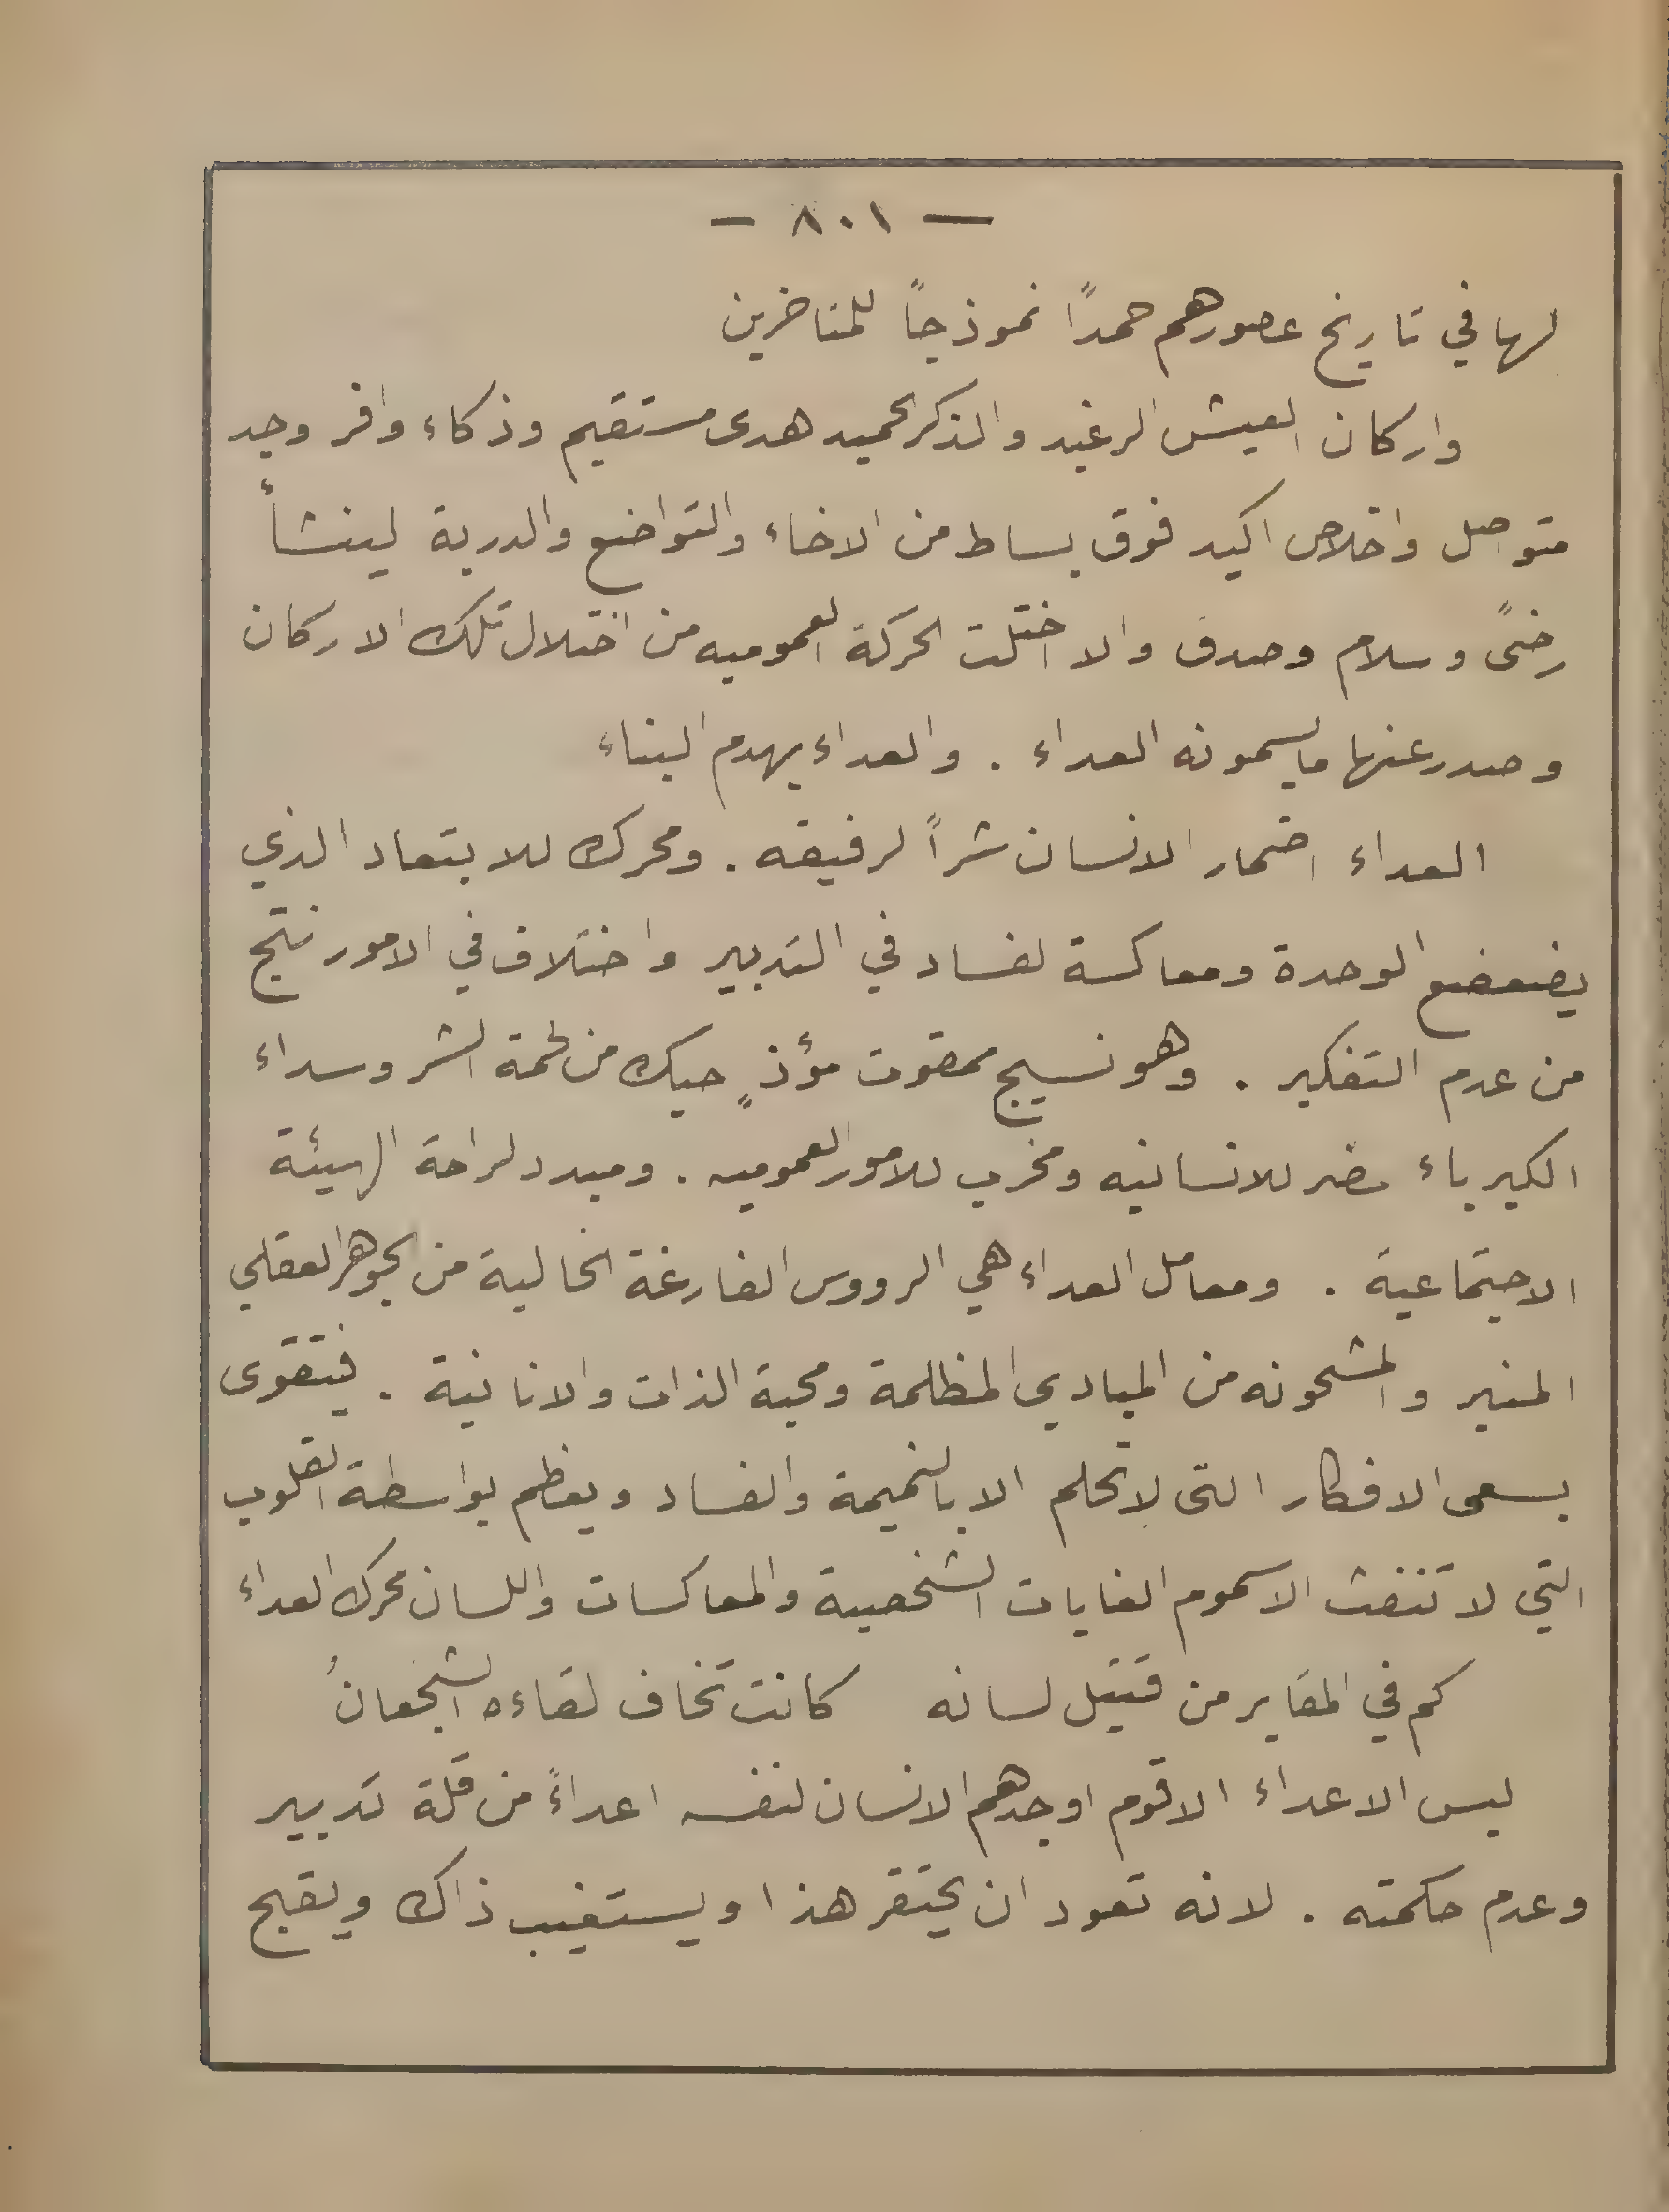 — ٨٠١ —
لها في تاريخ عصورهم حمداً نموذجاً للمتاخرين
واركان العيش الرغيد والذكر الحميد هدى مستقيم وذكاء وافر وجد
متواصل واخلاص اكيد فوق بساط من الاخاء والتواضع والدربة لينشأ
رضىً وسلام وصدق والا اختلت الحركة العموميه من اختلال تلك الاركان
وصدر عنها مايسمونه العداء . والعداء يهدم البناء
العداء اضمار الانسان شراً لرفيقه . ومحرك للابتعاد الذي
يضعضع الوحدة ومعاكسة لفساد في التدبير واختلاف في الامور نتج
من عدم التفكير . وهو نسيج ممقوت مؤذٍ حيك من لحمة الشر وسداء
الكبرياء مضر للانسانيه ومخرب للامور العموميه . ومبدد لراحة الهيئة
الاجتماعية . ومعامل العداء هي الرووس الفارغة الخالية من الجوهر العقلي
المنير والمشحونه من المبادي المظلمة ومحبة الذات والانانية . فيتقوى
بسعى الافكار التى لا تحلم الا بالنميمة والفساد ويعظم بواسطة القلوب
التي لا تنفث الا سموم الغايات الشخصية والمعاكسات واللسان محرك العداء
كم في المقابر من قتيل لسانه كانت تخاف لقاءه الشجعانُ
ليس الاعداء الا قوم اوجدهم الانسان لنفسه اعداءً من قلة تدبير
وعدم حكمته . لانه تعود ان يحتقر هذا ويستغيب ذاك ويقبح